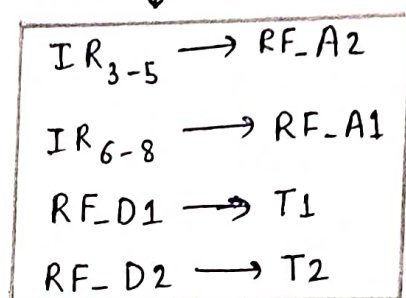 IR₃₋₅ → RF_A2
IR₆₋₈ → RF_A1
RF_D1 → T1
RF_D2 → T2